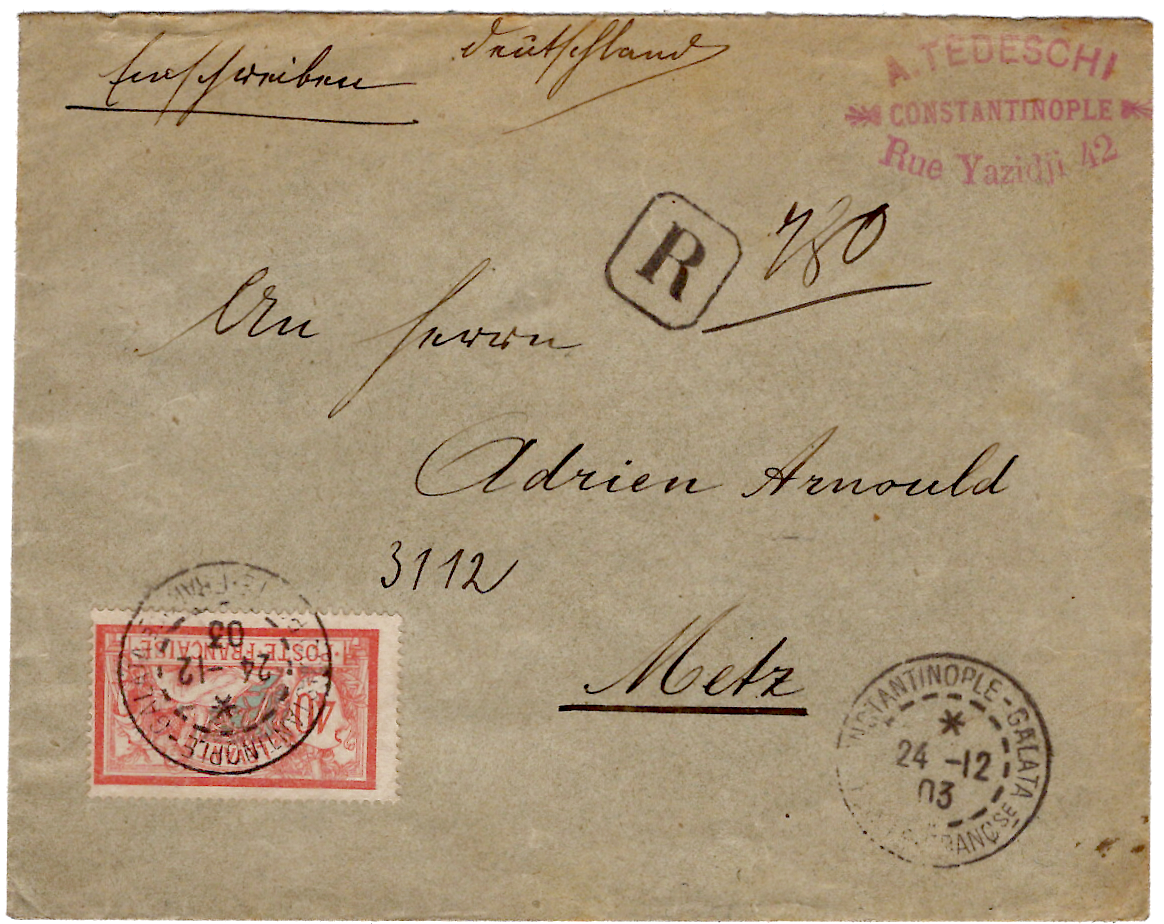 Einschreiben
Deutschland
A. TEDESCHI
CONSTANTINOPLE
Rue Yazidji 42
R
780
An Herrn
Adrien Arnould
3112
Metz
POSTE FRANÇAISE
40
24 -12
03
NSTANTINOPLE-GALATA
24 -12
03